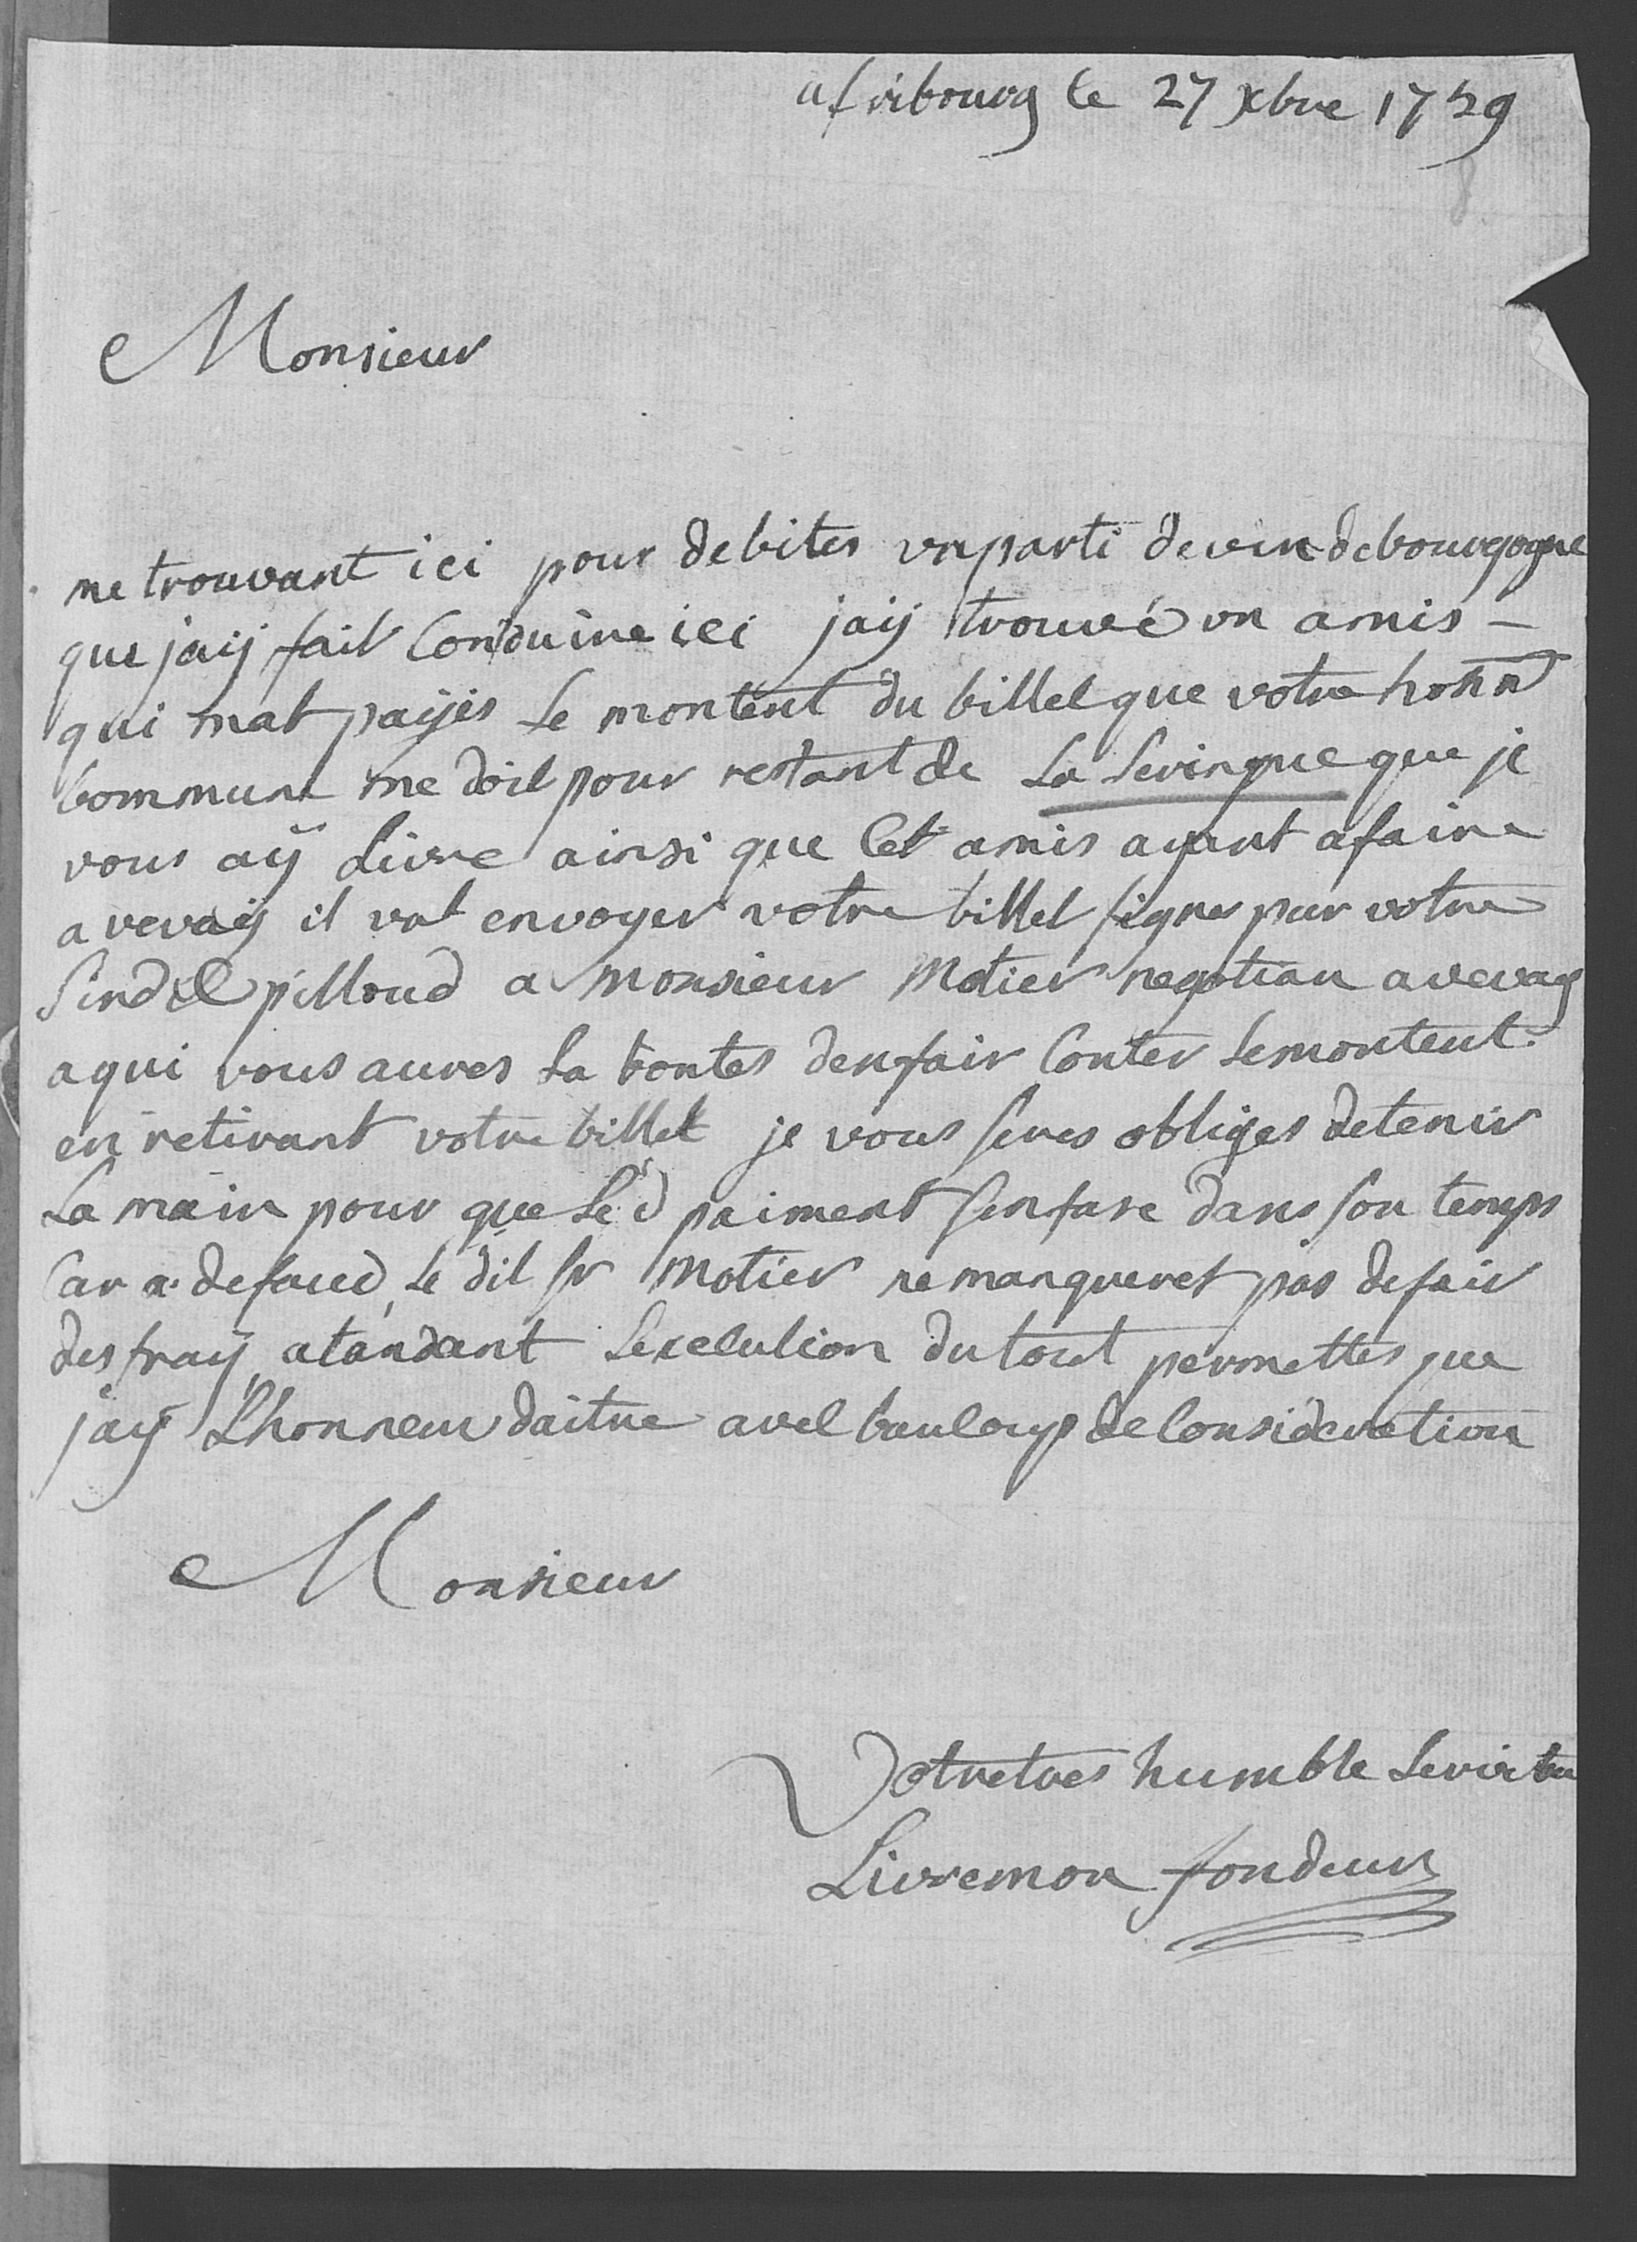 a fribourg le 27 xbre 1759
Monsieur
me trouvant ici pour debites un parti de vin de bourgogne
que jaÿ fait Conduire ici jaÿ trouvé un amis –
qui mat payés Le montent du billet que votre honn
Commune me doit pour restant de La Seringue que je
vous aÿ Livre ainsi que Cet amis ayant a faire
a vevaÿ il vat envoyer votre billet signer par votre
Sindic pilloud a Monsieur Motier negotian a vevaÿ
a qui vous aures La bontes den fair Conter Le montent
en retirant votre billet je vous seres obliges de tenir
La main pour que Le d paiment sen fase dans son temps
Car a defaud Le dit sr Motier ne manqueret pas de fair
des fraÿ atandant Lexecution du tout permettes que
jaÿ Lhonneur daitre avec baucoup de Consideration
Monsieur
Votre tres humble Serviteu
Livremon fondeur